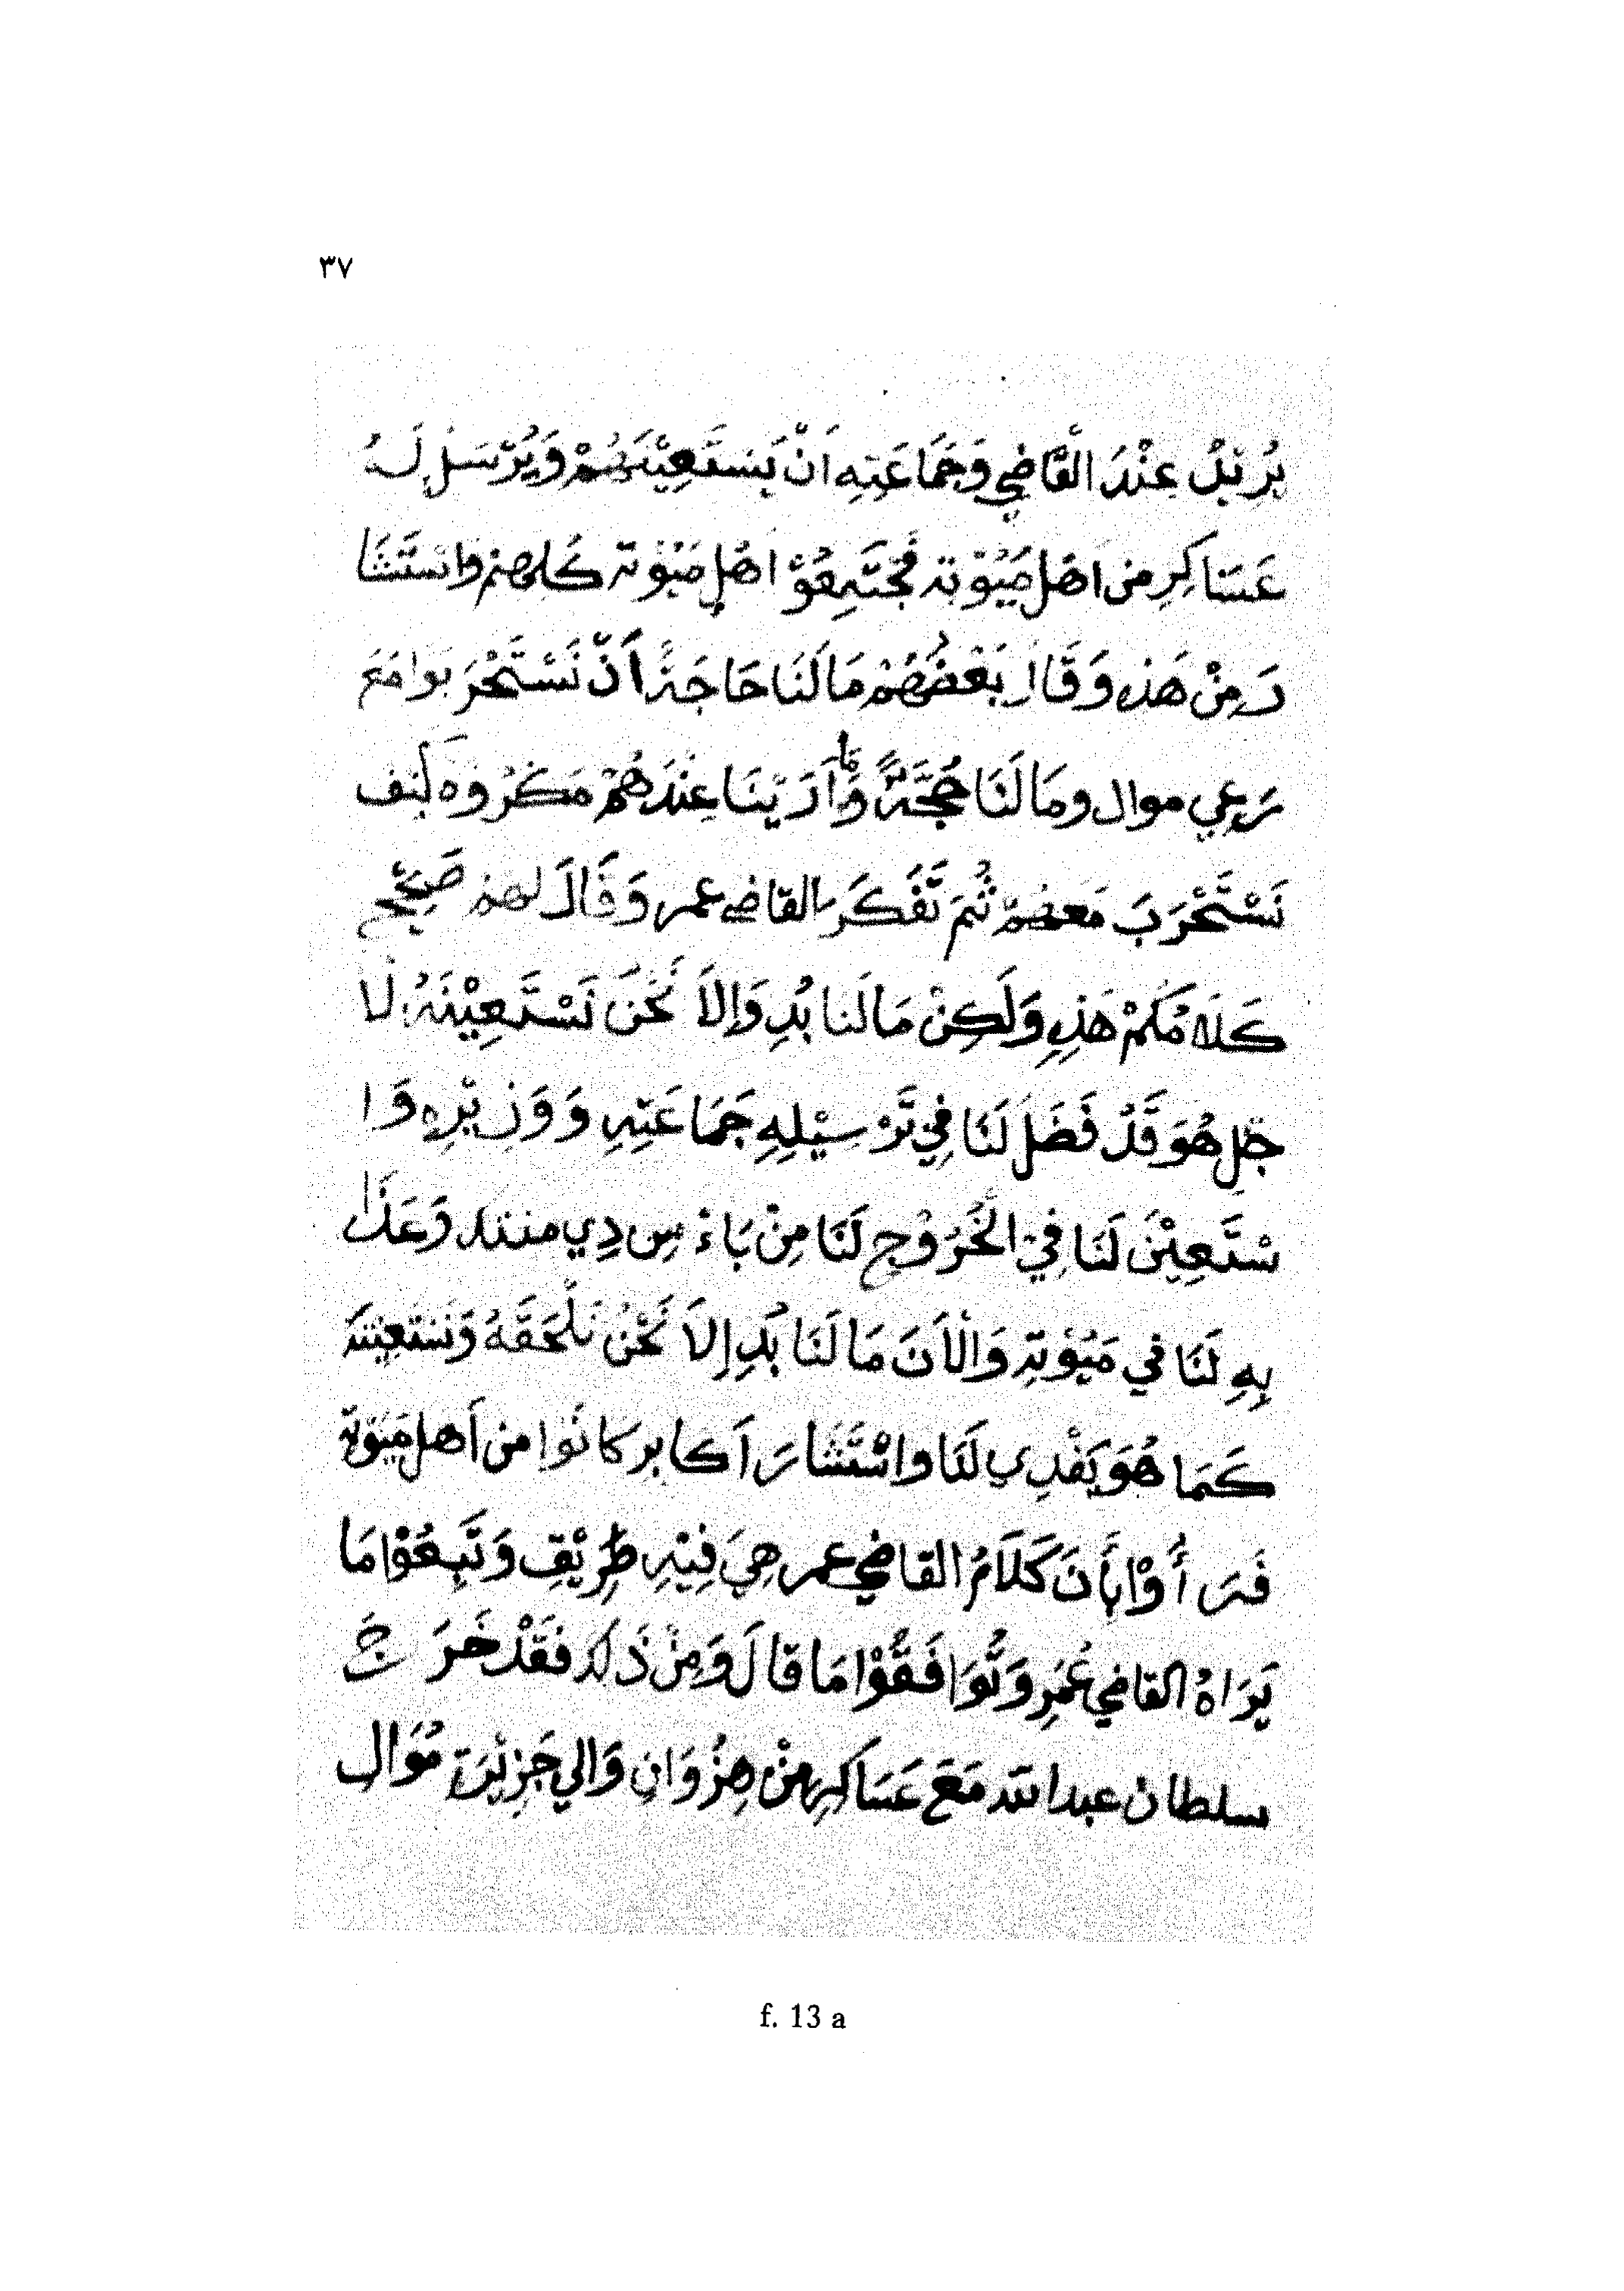 ٣٧
يُرِيْدُ عِنْدَ القَّاضِي وَجَمَاعَتِهِ اَنْ يَسْتَعِيْنَهُمْ وَيُرْسَلْ لَهُ
عَسَاكِرِ من اهْل مَيُوْتة فَجْتَمِعُوْ اهْلِ مَيُوْتة كَلهم واسْتَشَا
رَ مِنْ هَذِه وَقَال بَعْضُهُمْ مَا لَنَا حَاجَةً أَنْ نَسْتَحْرَبوا مَعَ
رَعِي موال ومَا لَنَا حُجَّةً وَمَا اَرَيْنَا عِنْدَهُمْ مَكْرُوه لَنف
نَسْتَحْرَبَ مَعهُمْ ثُمَ تَّفَكَرَ القاضي عمر وَقَالَ لهم صَحِيْح
كَلَامُكُمْ هَذِهِ وَلَكِنْ مَا لَنا بُدِ وَإِلاَ نَحْنَ نَسْتَعِيْنَهُ لَا
جَلِ هُوَ قَدْ فَضَلَ لَنَا فِي تَرْسِيْلِهِ جَمَاعَتِهِ وَوَزِيْرِهِ وَا
سْتَعِيْنَ لَنَا فِيْ الْخَرُوْجِ لَنَا مِنْ بَاءْ سِ دِي منتند وَعَذَا
بِهِ لَنَا في مَيُوْتةِ وَالْاَنَ مَا لَنَا بُدِ إِلاَ نَحْنُ نَلْحَقَهُ وَنَسْتَعِيْنَهُ
كَمَا هُوَ يَفْدِي لَنَا واسْتَشَارَ اَكابر كانُوا من أهل مَيُوْتة
فَرَأُوْا بِأَنَ كَلَامُ القاضِي عمر هِيَ فِيْهِ طَرِيْقِ وَتَّبِعُوْا مَا
يَرَاهُ القاضِي عُمَرِ وَتُّوَافَقُوْا مَا قالَ وَمِنْ ذَلك فَقَدْ خَرَجَ
سلطان عبد الله مَعَ عَسَاكِرِ مِنْ هِنْزُوَانِ وَالي جَزِيْرَةِ مُوَالِ
f. 13 a